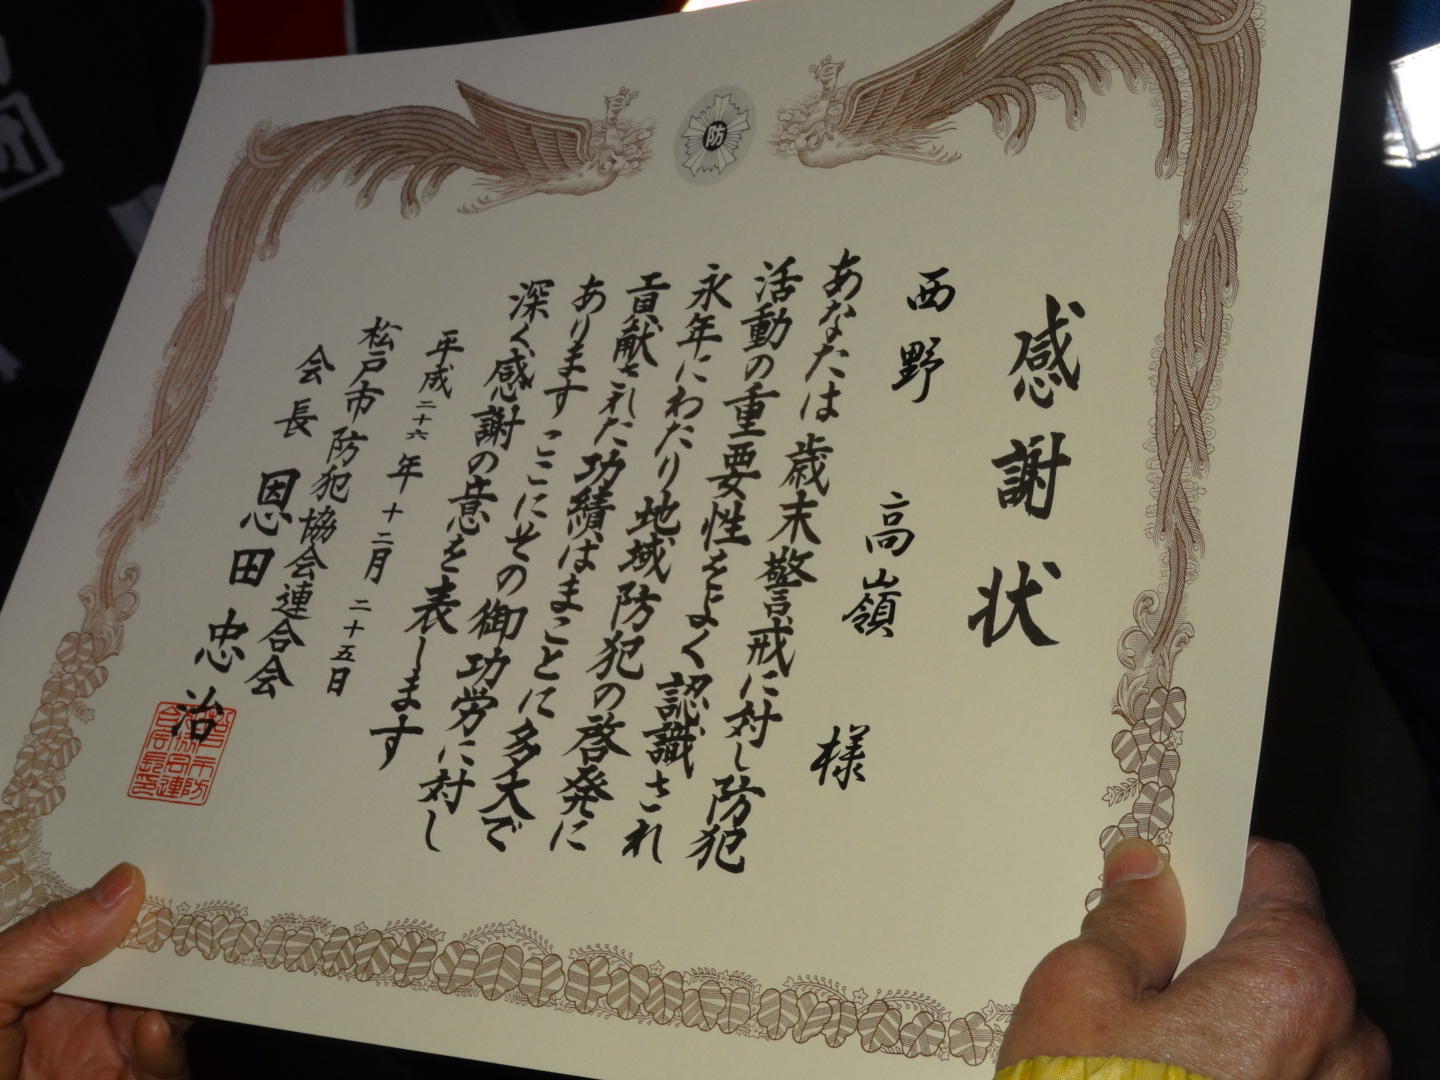 防
感謝状
西野 高嶺 様
あなたは歳末警戒に対し防犯
活動の重要性をよく認識され
永年にわたり地域防犯の啓発に
貢献された功績はまことに多大で
あります ここにその御功労に対し
深く感謝の意を表します
平成二十六年十二月二十五日
松戸市防犯協会連合会
会長 恩田忠治